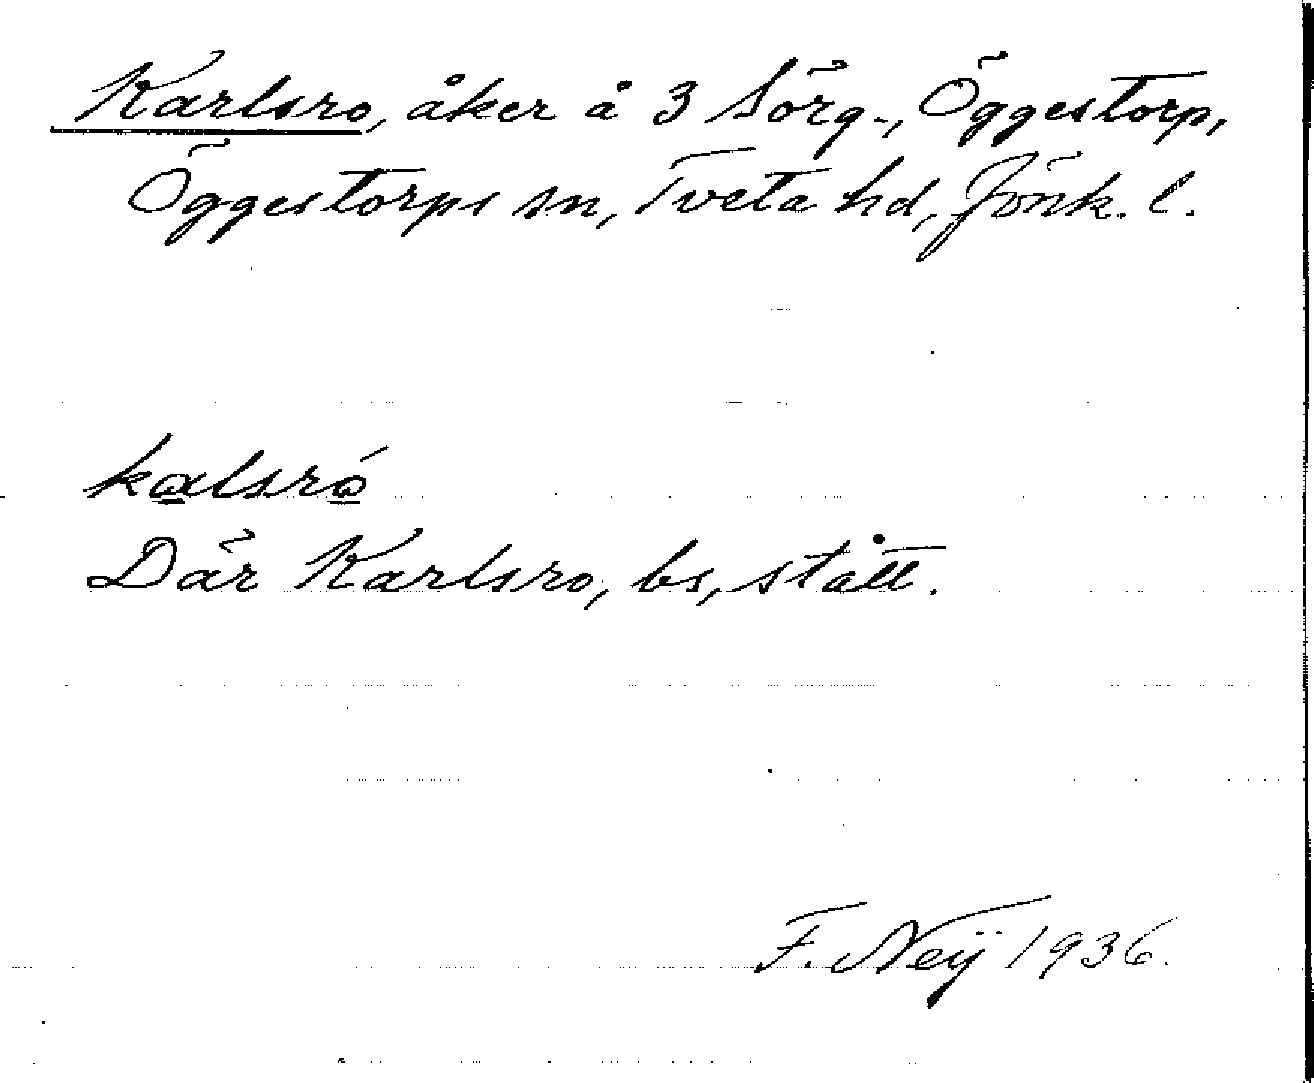 Karlsro, åker å 3 Sörg., Öggestorp,
Öggestorps sn, Tveta hd, Jönk. l.
kalsró
Där Karlsro, bs, stått.
F. Neÿ 1936.